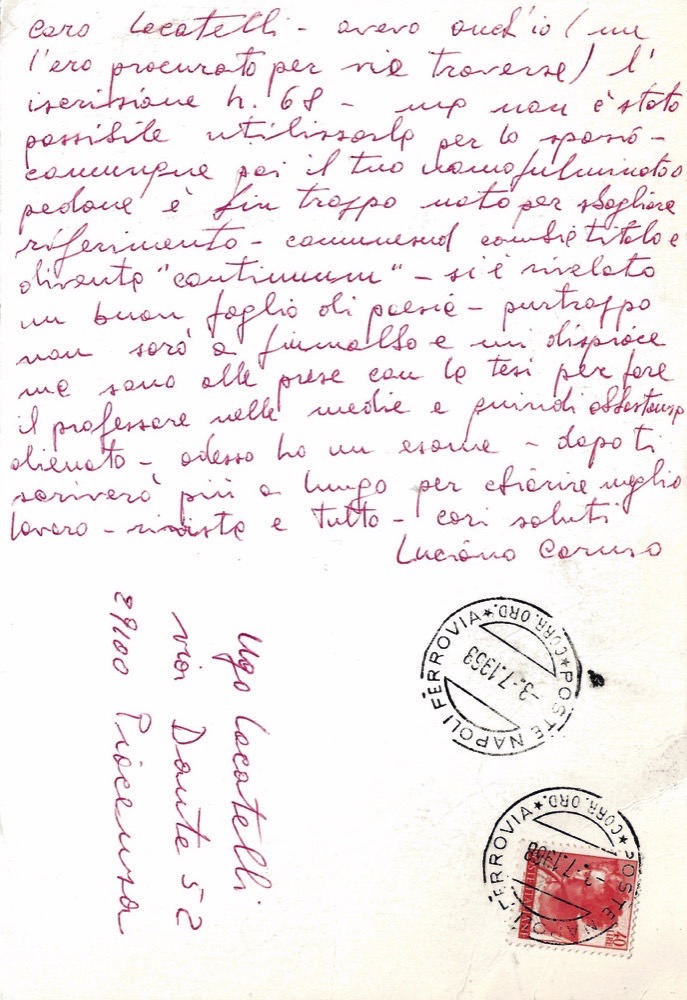 caro Locatelli - avevo anch'io (me
l'ero procurato per vie traverse) l'
iscrizione n. 68 - ma non è stato
possibile utilizzarla per lo spazio -
comunque poi il tuo uomo fulminato o
pedone è fin troppo noto per sbagliare
riferimento - cambia titolo e
diventa "continuum" - si è rivelato
un buon foglio di poesie - purtroppo
non sarò a e mi dispiace
ma sono alle prese con la tesi per fare
il professore nelle medie e quindi abbastanza
alienato - adesso ho un esame - dopo ti
scriverò più a lungo per chiarire meglio
lavoro - rivista e tutto - cari saluti
Luciano Caruso
Ugo Locatelli
via Dante 52
29100 Piacenza
POSTE NAPOLI FERROVIA
CORR. ORD.
-3.-7.1968
POSTE NAPOLI FERROVIA
CORR. ORD.
-3.-7.1968
40
LIRE